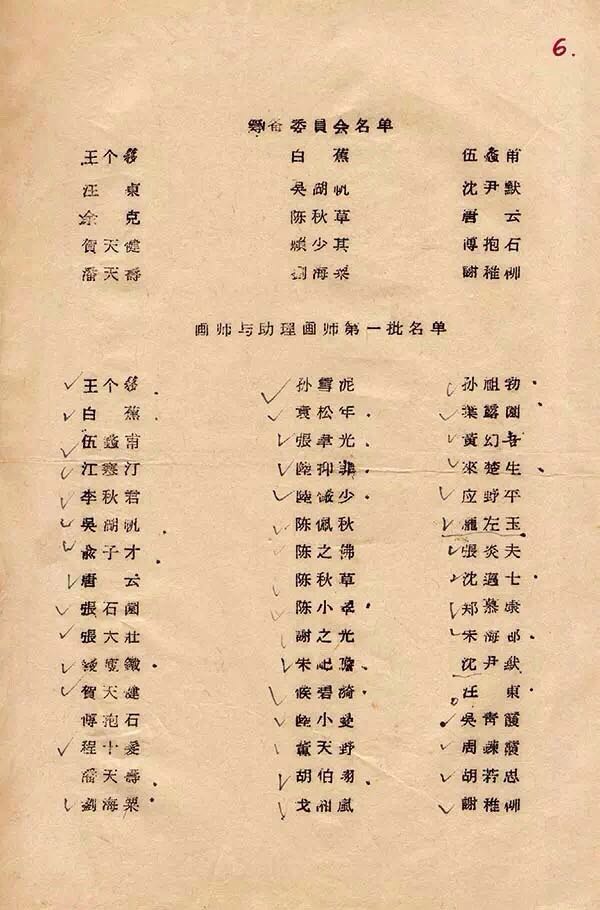 6.
筹备委員会名单
王个簃 白蕉 伍蠡甫
汪東 吳湖帆 沈尹默
余克 陈秋草 唐云
賀天健 賴少其 傅抱石
潘天壽 劉海粟 謝稚柳
画师与助理画师第一批名单
王个簃 孙雪泥 孙祖勃
白蕉 袁松年 葉露園
伍蠡甫 張聿光 黃幻吾
江寒汀 陸抑非 來楚生
李秋君 陸儼少 应野平
吳湖帆 陈佩秋 龐左玉
俞子才 陈之佛 張炎夫
唐云 陈秋草 沈邁士
張石園 陈小翠 郑慕康
張大壯 謝之光 朱梅邨
朱屺瞻 沈尹默
賀天健 侯碧漪 汪東
傅抱石 陸小曼 吳青霞
程十髮 董天野 周鍊霞
潘天壽 胡伯翔 胡若思
劉海粟 戈湘嵐 謝稚柳